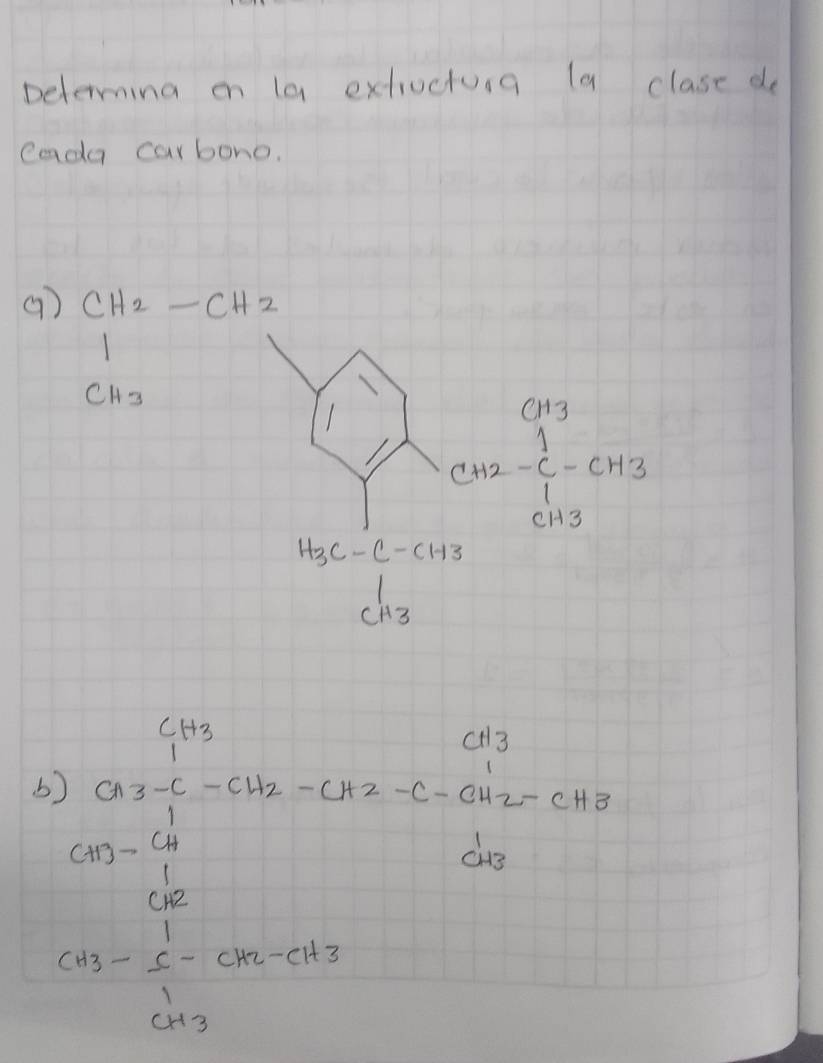 Determina en la extructura la clase de
cada carbono.
a) CH2 - CH2
CH3
CH3
CH2 - C - CH3
CH3
H3C - C - CH3
CH3
CH3 CH3
b) CH3 - C - CH2 - CH2 - C - CH2 - CH3
CH3 - CH CH3
CH2
CH3 - C - CH2 - CH3
CH3